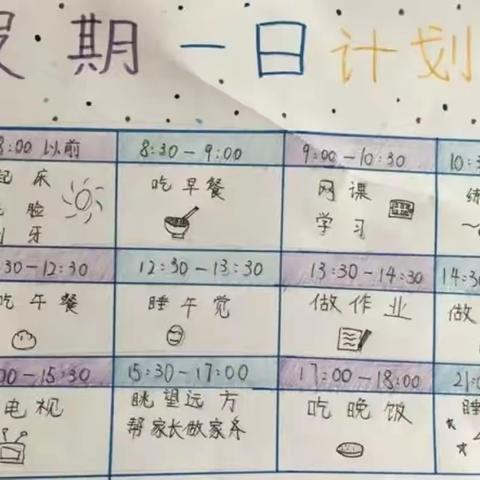 期一日计划
8:00 以前
8:30-9:00
9:00-10:30
10:3
起床
吃早餐
网课
脸
学习
牙
30-12:30
12:30-13:30
13:30-14:30
14:30
吃午餐
睡午觉
做作业
做
00-15:30
15:30-17:00
17:00-18:00
21:0
电视
眺望远方
吃晚饭
睡
帮家长做家务